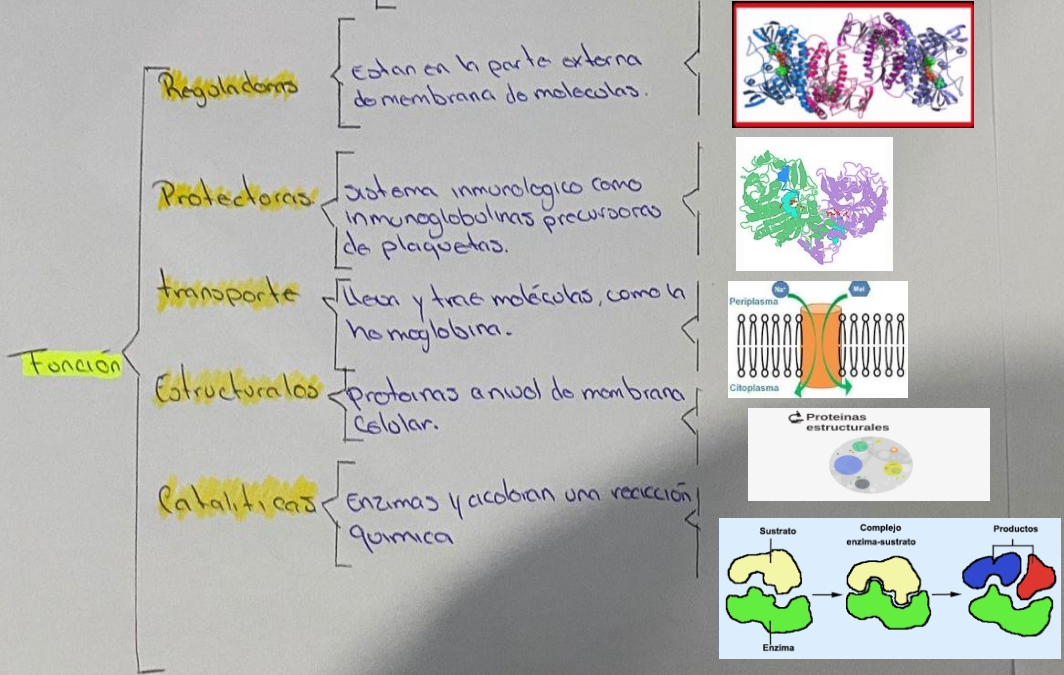 Función
Reguladoras
Estan en la parte externa
de membrana de moleculas.
Protectoras
sistema inmunologico como
inmunoglobulinas precursoras
de plaquetas.
transporte
lleva y trae molécúlas, como la
hemoglobina.
Estructurales
proteinas a nivel de membrana
Celular.
Cataliticas
Enzimas y aceleran una reacción
quimica
Na⁺
Mel
Periplasma
Citoplasma
Proteinas
estructurales
Sustrato
Complejo
enzima-sustrato
Productos
Enzima